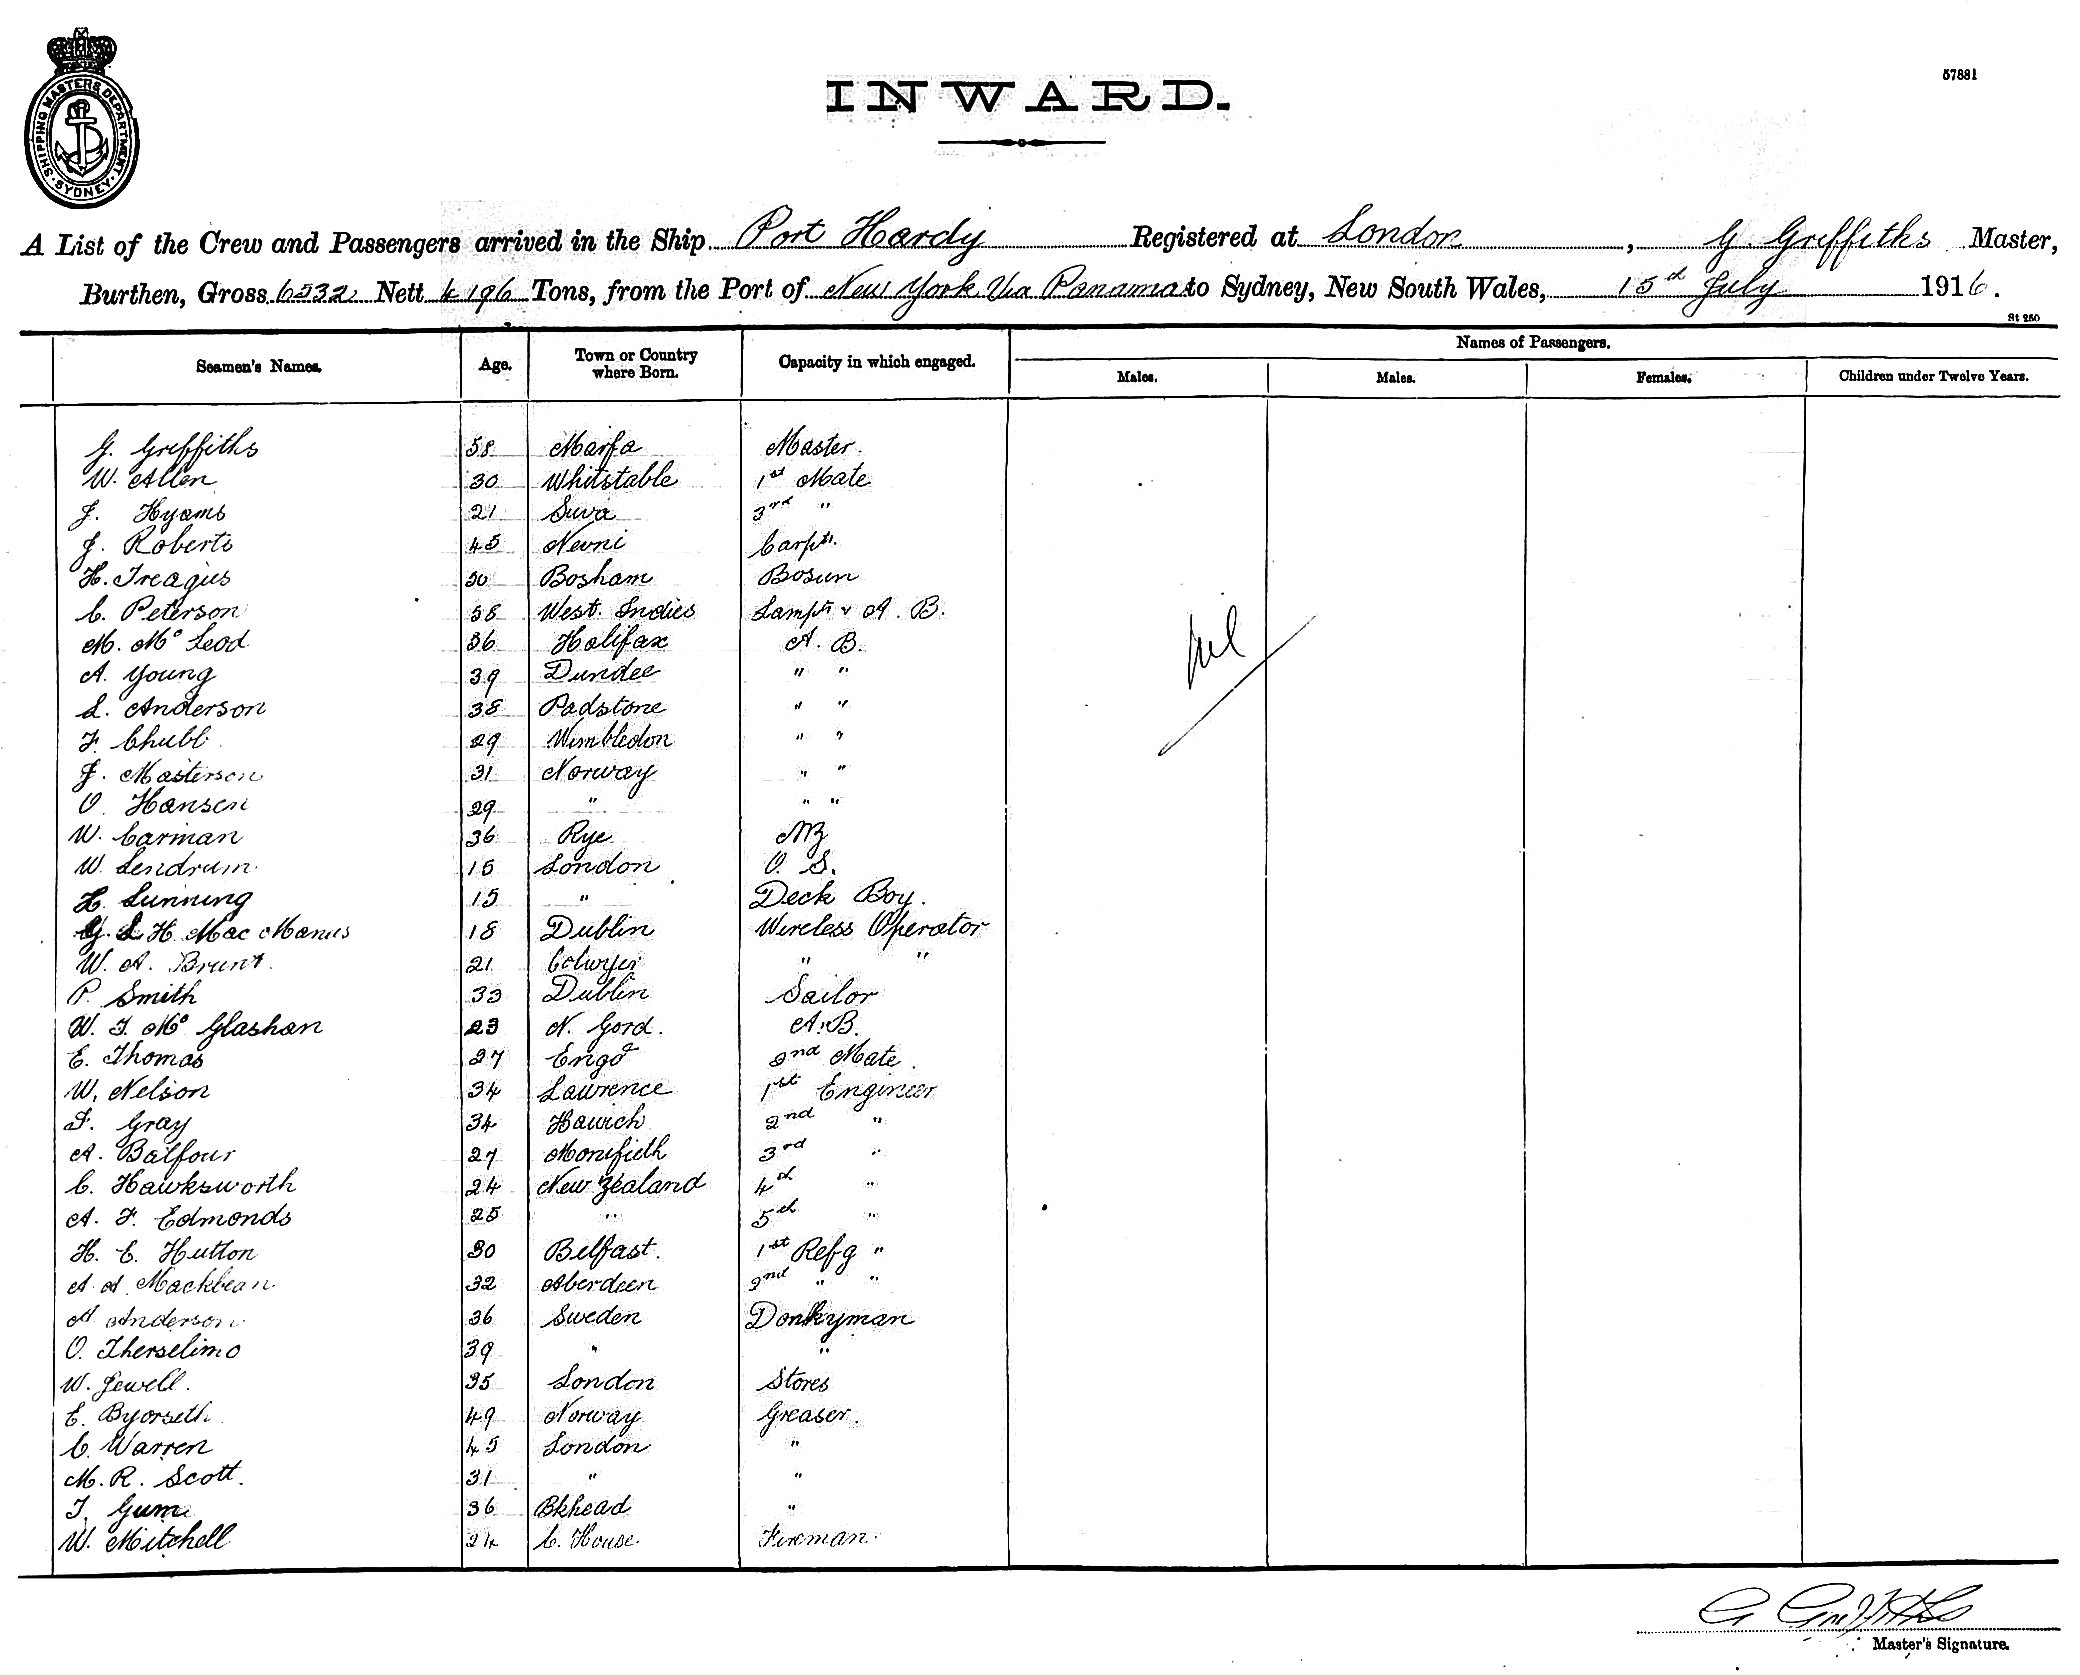 57881
SHIPPING MASTERS DEPARTMENT · SYDNEY ·
INWARD.
A List of the Crew and Passengers arrived in the Ship Port Hardy Registered at London, G Griffiths Master,
Burthen, Gross 6532 Nett 4196 Tons, from the Port of New York Via Panama to Sydney, New South Wales, 15th July 1916.
St 250
Seamen's Names. Age. Town or Country where Born. Capacity in which engaged. Names of Passengers.
Males. Males. Females. Children under Twelve Years.
G. Griffiths 58 Marfa Master.
W. Allen 30 Whitstable 1st Mate
J. Hyams 21 Suva 3rd "
J. Roberts 45 Nevni Carptr.
H. Treagus 30 Bosham Bosun
C. Peterson 58 West. Indies Lamptr & A. B.
M. Mc Leod 36 Halifax A. B.
A. Young 39 Dundee " "
L. Anderson 38 Padstone " "
F. Chubb 29 Wimbledon " "
J. Masterson 31 Norway " "
O. Hansen 29 " " "
W. Carman 36 Rye AB
W. Lendrum 15 London O. S.
H. Lunning 15 " Deck Boy.
H. Mac Manus 18 Dublin Wireless Operator
W. A. Brunt. 21 Colwyn " "
P. Smith 33 Dublin Sailor
W. J. Mc Glashan 23 N. Gord. A.B.
E. Thomas 27 Engd 2nd Mate.
W. Nelson 34 Lawrence 1st Engineer
F. Gray 34 Hawich 2nd "
A. Balfour 27 Monifieth 3rd "
C. Hawksworth 24 New Zealand 4th "
A. F. Edmonds 25 " 5th "
H. E. Hutton 30 Belfast. 1st Refg "
A A Mackbean. 32 Aberdeen 2nd " "
A Anderson. 36 Sweden Donkyman
O. Therselimo 39 " "
W. Jewell. 35 London Stores
E. Byorseth 49 Norway Greaser.
C. Warren 45 London "
M. R. Scott. 31 " "
J. Gum 36 Bkhead "
W. Mitchell 24 C. House. Fireman.
Nil
G Griffiths
Master's Signature.